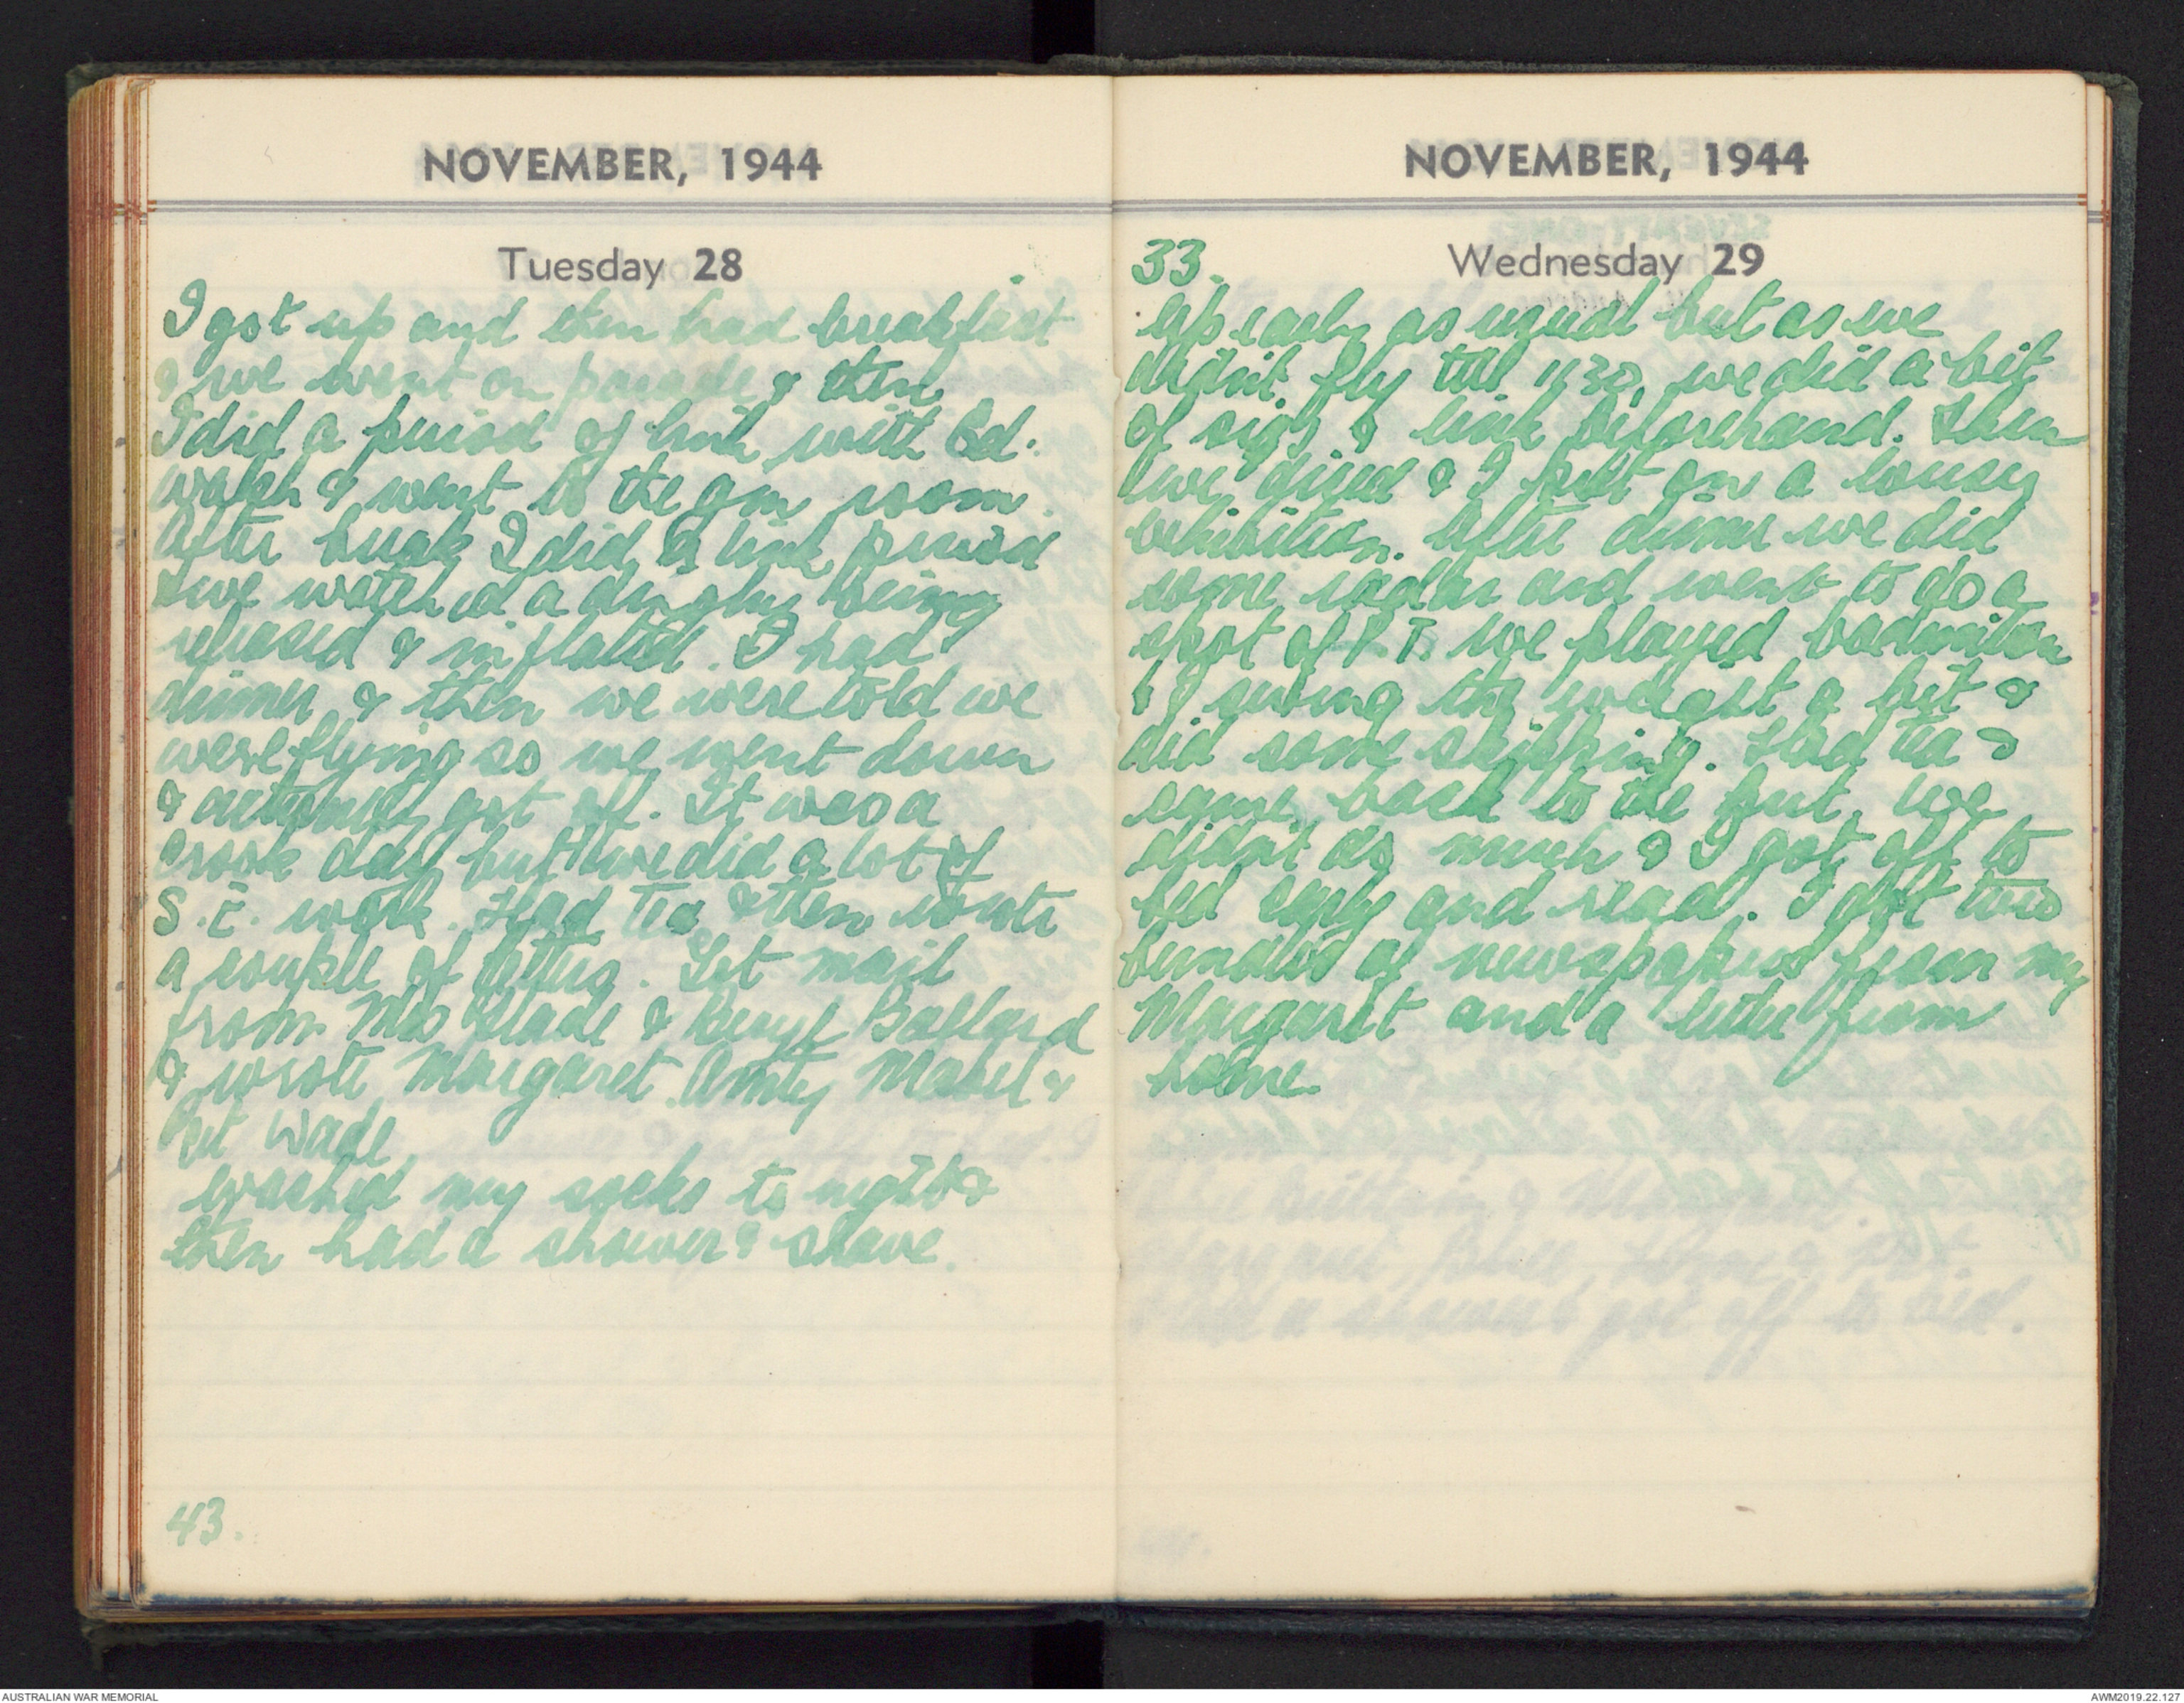 NOVEMBER, 1944
Tuesday 28
I got up and then had breakfast
& we went on parade & then
I did a period of link with Ed.
Walsh & went to the gen room.
After break I did a link period
& we watched a dinghy being
released & inflated. I had
dinner & then we were told we
were flying so we went down
& actually got off. It was a
crook day but we did a lot of
S.E. work. Had Tea & then wrote
a couple of letters. Got mail
from Mrs Slade & Beryl Ballard
& wrote Margaret. Aunty Mabel &
Pet Wade
Washed my socks to night &
then had a shower & shave.
43.
NOVEMBER, 1944
33.
Wednesday 29
Up early as usual but as we
didn't fly till 1130, we did a bit
of sigs & link beforehand. Then
we dined & I put on a lousy
exhibition. After dinner we did
some radar and went to do a
spot of P.T. We played badminton
& I swung the weight a bit &
did some skipping. Had tea &
came back to the hut. We
didn't do much & I got off to
bed early and read. I got two
bundles of newspapers from my
Margaret and a letter from
home.
AUSTRALIAN WAR MEMORIAL
AWM2019.22.127